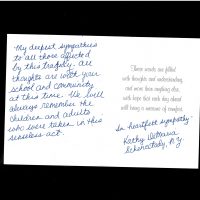 My deepest sympathies
to all those affected
by this tragedy. All
thoughts are with your
school and community
at this time. We will
always remember the
children and adults
who were taken in this
senseless act.
These words are filled
with thoughts and understanding,
and more than anything else,
with hope that each day ahead
will bring a measure of comfort.
In heartfelt sympathy
Kathy
Schenectady, N.Y.